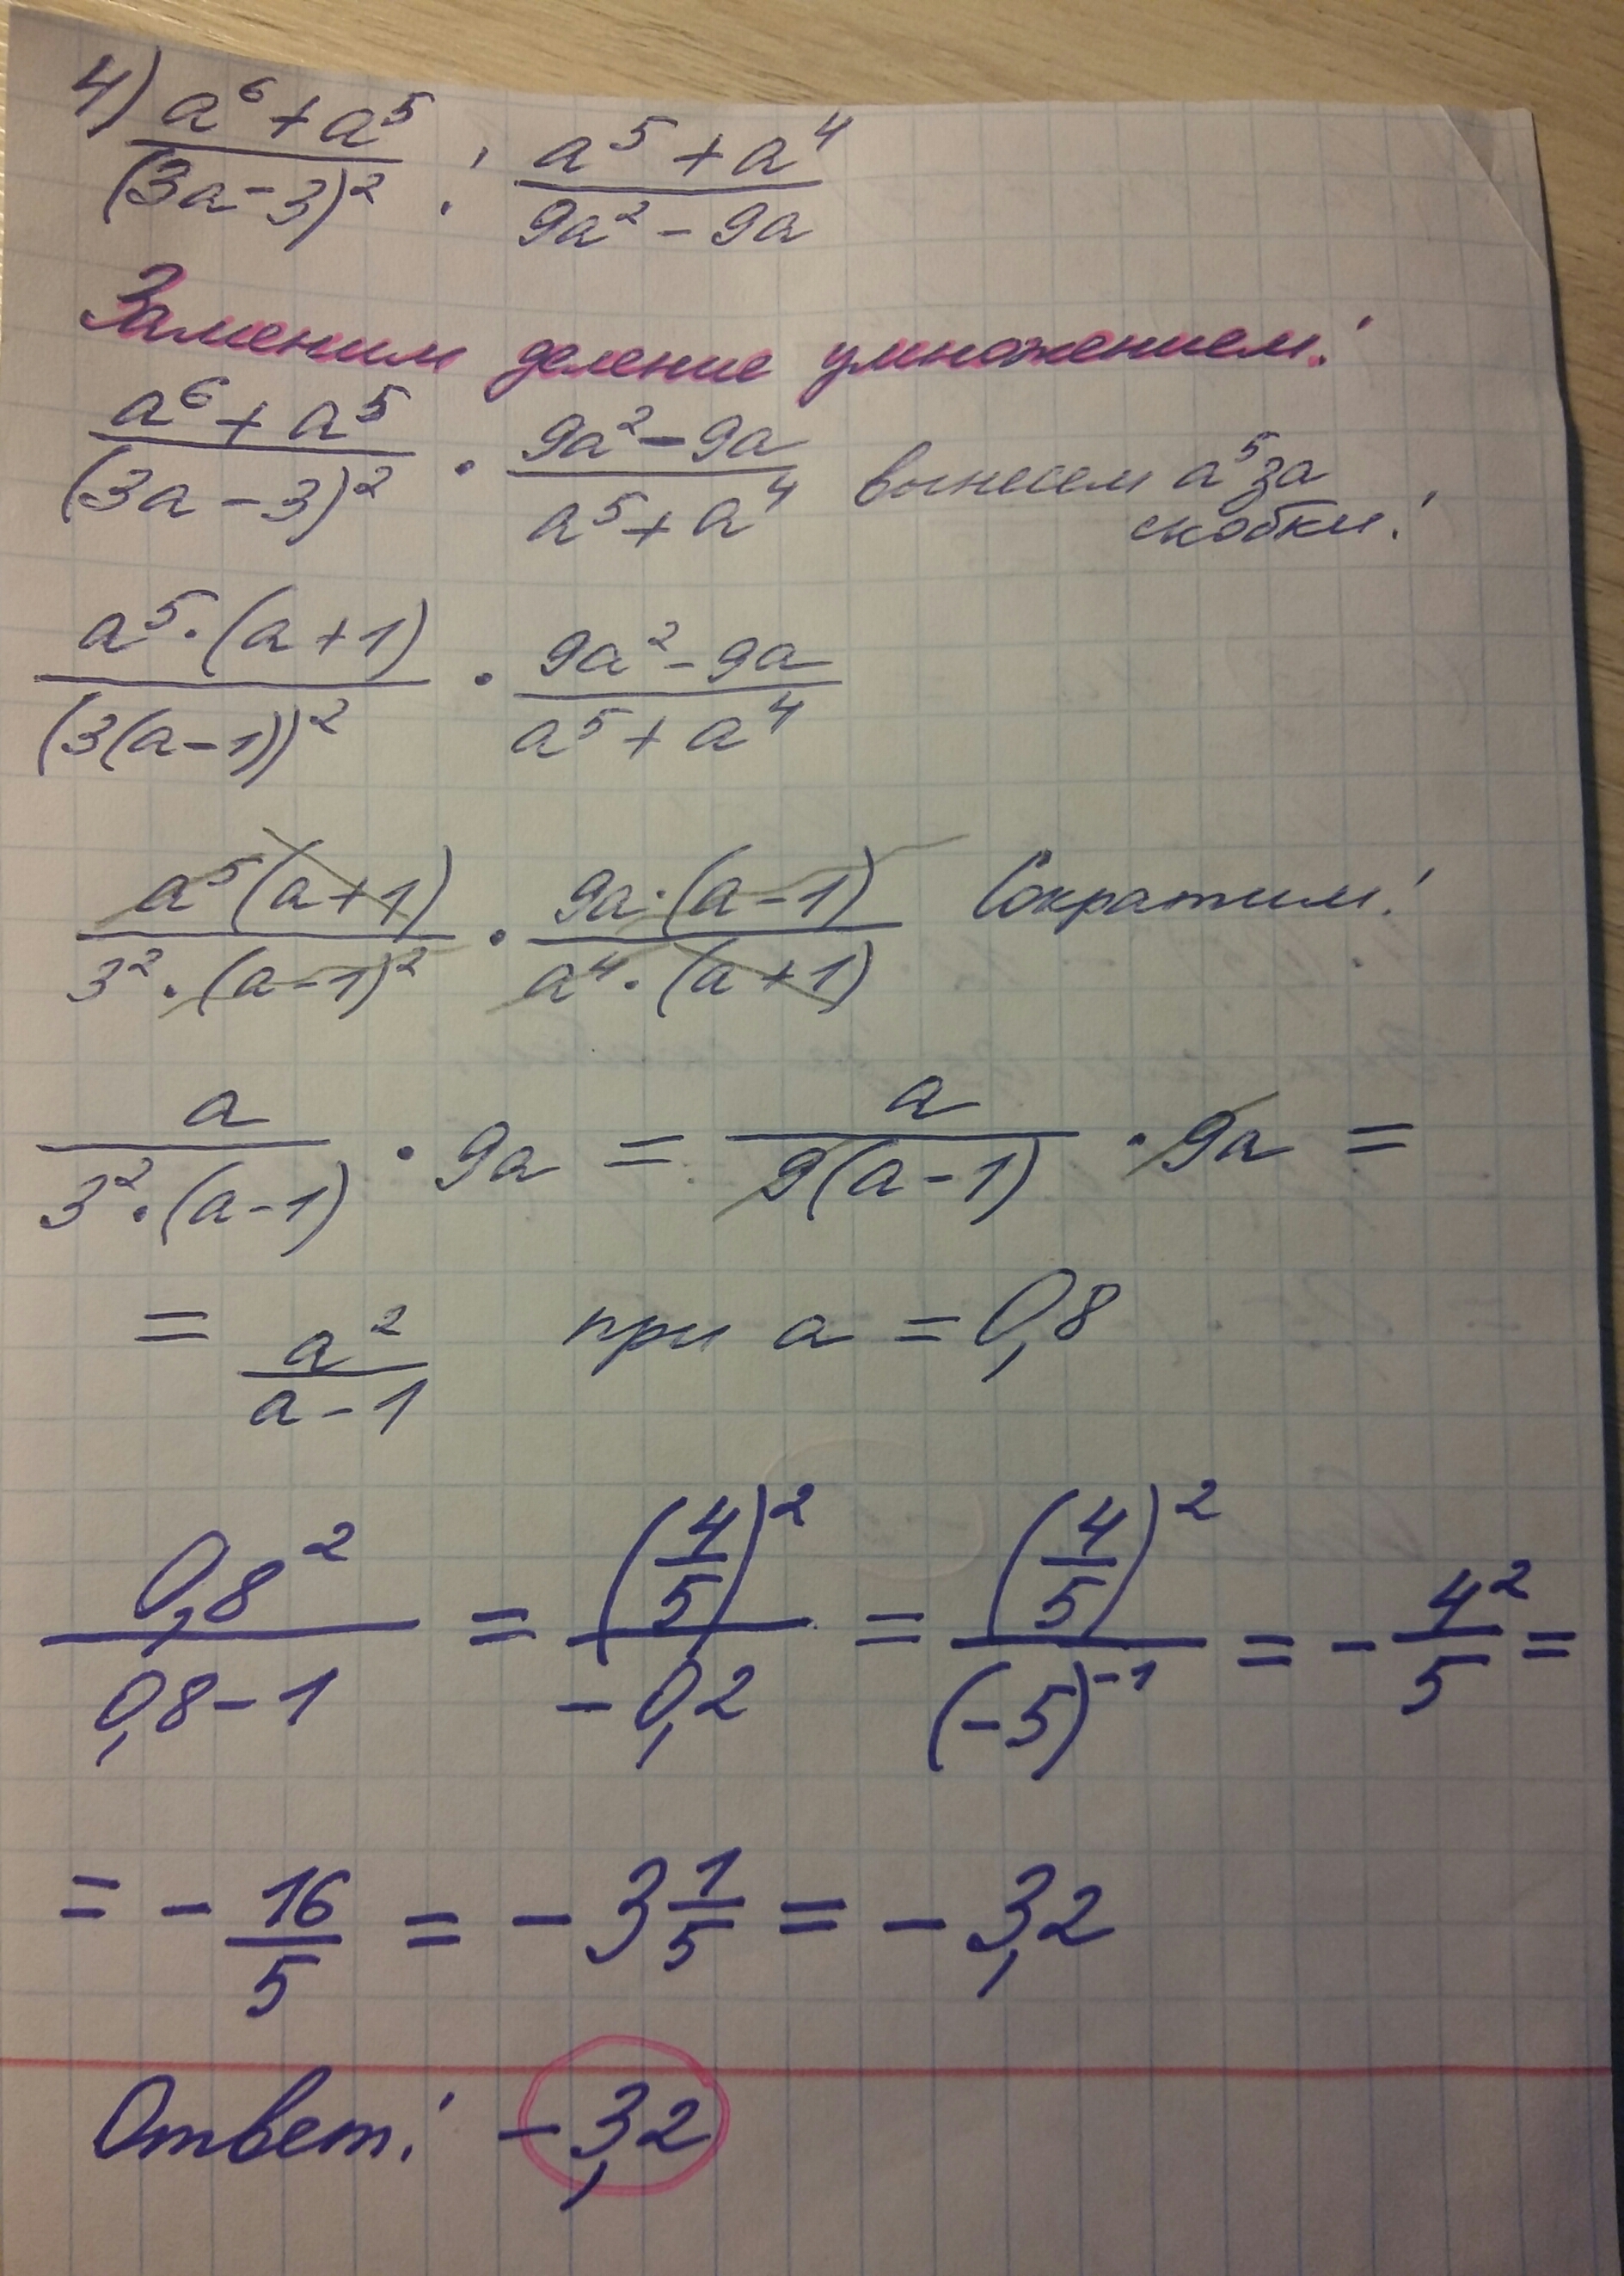 4) (a⁶ + a⁵)/(3a - 3)² : (a⁵ + a⁴)/(9a² - 9a)
Заменим деление умножением:
(a⁶ + a⁵)/(3a - 3)² · (9a² - 9a)/(a⁵ + a⁴) вынесем a⁵ за
скобки:
a⁵·(a + 1)/(3(a - 1))² · (9a² - 9a)/(a⁵ + a⁴)
a⁵(a + 1)/(3²·(a - 1)²) · 9a·(a - 1)/(a⁴·(a + 1)) Сократим:
a/(3²·(a - 1)) · 9a = a/(9(a - 1)) · 9a =
= a²/(a - 1) при a = 0,8
0,8²/(0,8 - 1) = (4/5)²/(-0,2) = (4/5)²/(-5)⁻¹ = - 4²/5 =
= - 16/5 = - 3 1/5 = - 3,2
Ответ: - 3,2